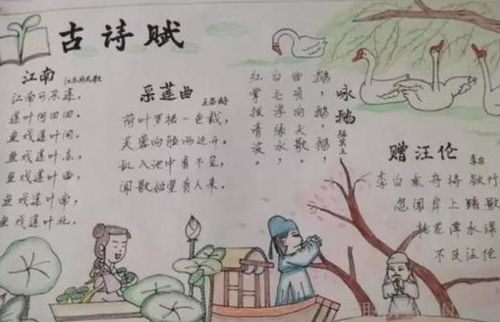 古诗赋
江南
江南可采莲，
莲叶何田田。
鱼戏莲叶间。
鱼戏莲叶东，
鱼戏莲叶西，
鱼戏莲叶南，
鱼戏莲叶北。
采莲曲 王昌龄
荷叶罗裙一色裁，
芙蓉向脸两边开。
乱入池中看不见，
闻歌始觉有人来。
咏鹅 骆宾王
鹅，鹅，鹅，
曲项向天歌。
白毛浮绿水，
红掌拨清波。
赠汪伦 李白
李白乘舟将欲行
忽闻岸上踏歌
桃花潭水深
不及汪伦